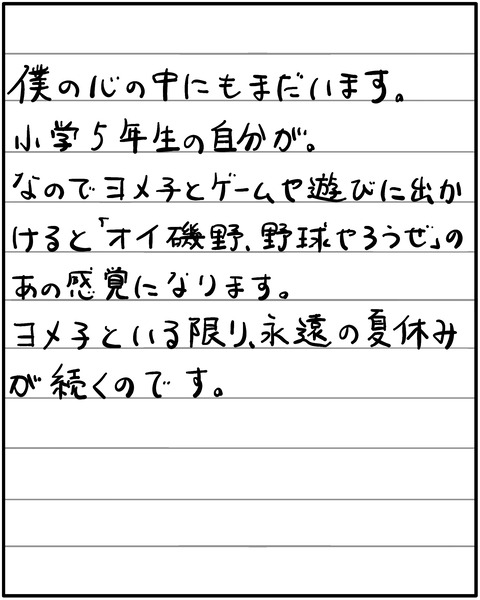 僕の心の中にもまだいます。
小学5年生の自分が。
なのでヨメ子とゲームや遊びに出か
けると「オイ磯野、野球やろうぜ」の
あの感覚になります。
ヨメ子といる限り、永遠の夏休み
が続くのです。